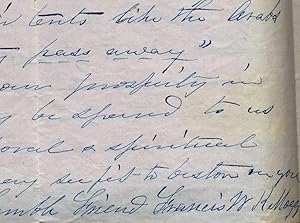 tents like the Arabs
pass away"
our prosperity in
be spared to us
moral & spiritual
may see fit to bestow on you
humble Friend Francis W